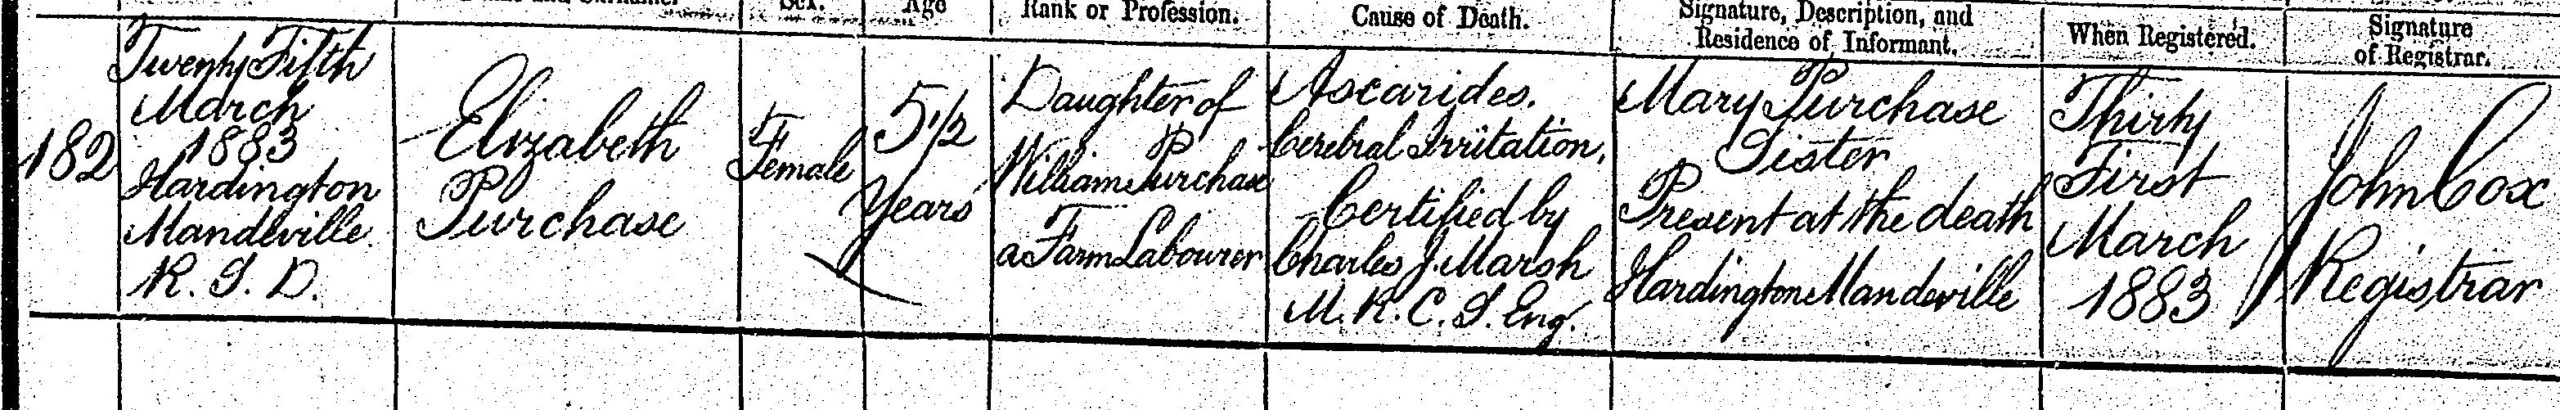 Sex.
Age
Rank or Profession.
Cause of Death.
Signature, Description, and
Residence of Informant.
When Registered.
Signature
of Registrar.
182
Twenty Fifth
March
1883
Hardington
Mandeville
R. S. D.
Elizabeth
Purchase
Female
5 1/2
Years
Daughter of
William Purchase
a Farm Labourer
Ascarides.
Cerebral Irritation.
Certified by
Charles J. Marsh
M. R. C. S. Eng.
Mary Purchase
Sister
Present at the death
Hardington Mandeville
Thirty
First
March
1883
John Cox
Registrar